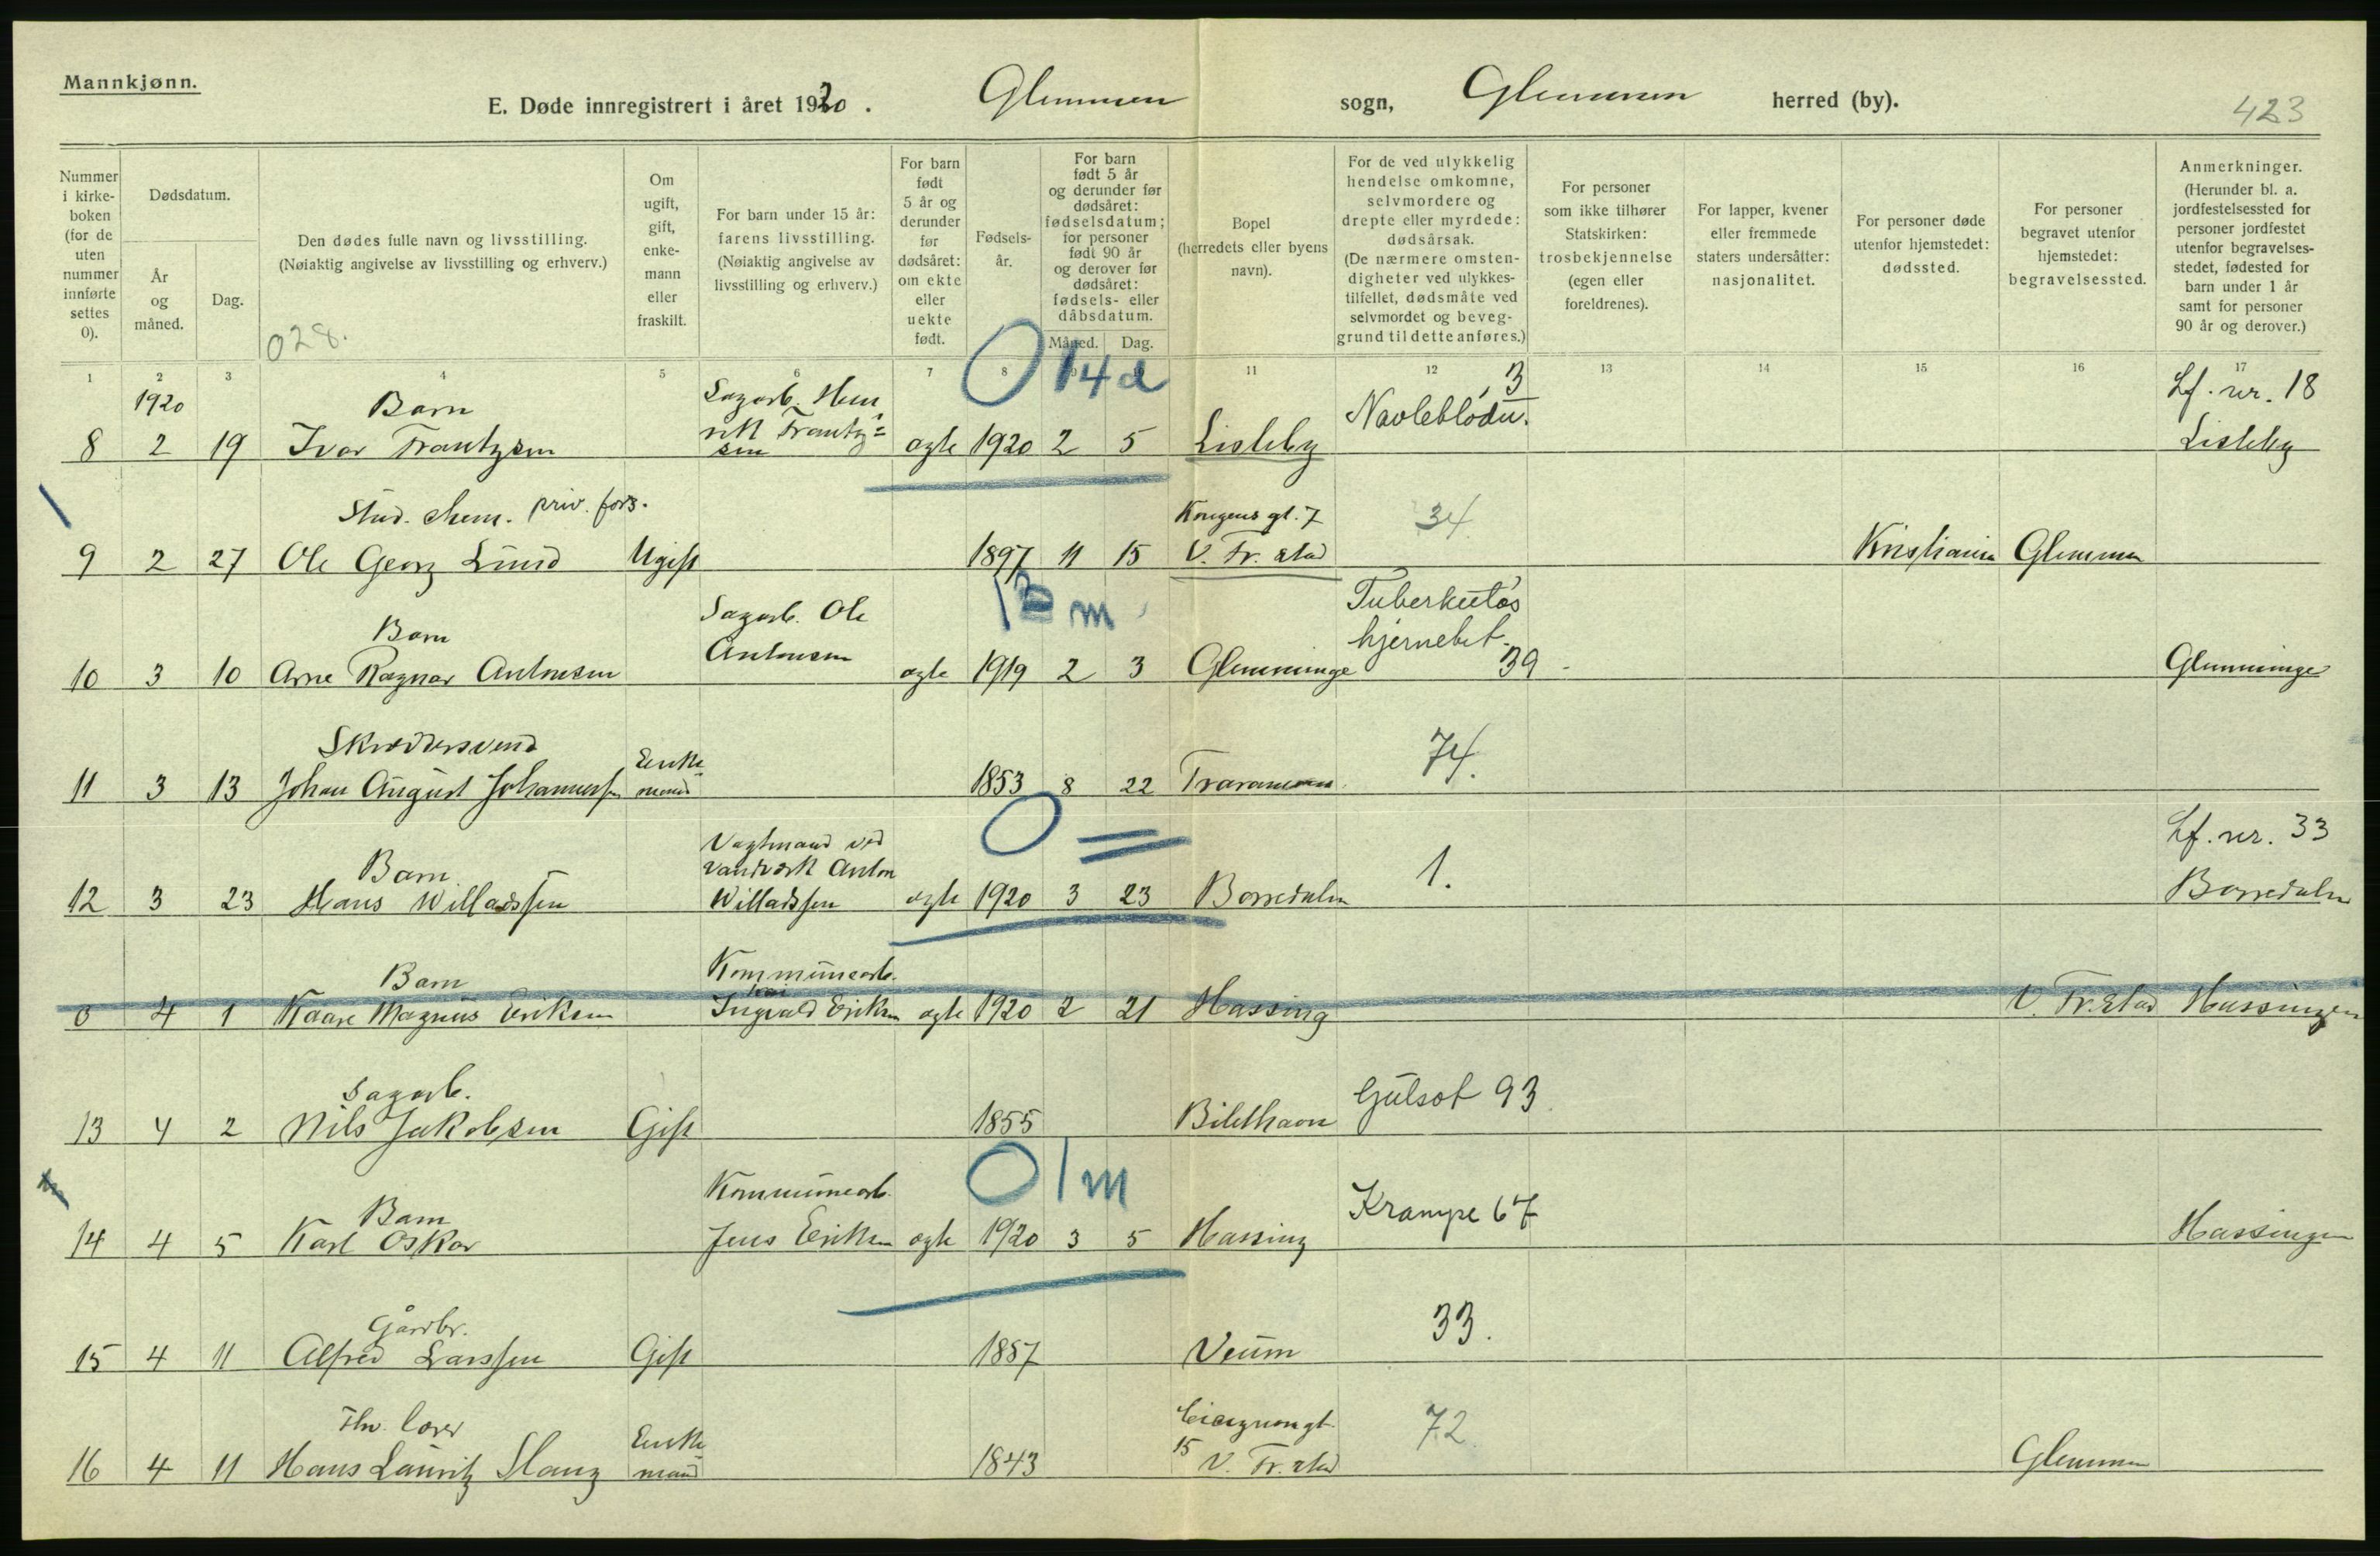 Mannkjønn.
E. Døde innregistrert i året 1920. Glemmen sogn, Glemmen herred (by).
423
Nummer i kirke-boken (for de uten nummer innførte settes 0).
Dødsdatum.
År og måned.
Dag.
Den dødes fulle navn og livsstilling.
(Nøiaktig angivelse av livsstilling og erhverv.)
028.
Om ugift, gift, enke-mann eller fraskilt.
For barn under 15 år: farens livsstilling. (Nøiaktig angivelse av livsstilling og erhverv.)
For barn født 5 år og derunder før dødsåret: om ekte eller uekte født.
Fødsels-år.
For barn født 5 år og derunder før dødsåret: fødselsdatum; for personer født 90 år og derover før dødsåret: fødsels- eller dåbsdatum.
Måned. Dag.
Bopel (herredets eller byens navn).
For de ved ulykkelig hendelse omkomne, selvmordere og drepte eller myrdede: dødsårsak. (De nærmere omsten-digheter ved ulykkes-tilfellet, dødsmåte ved selvmordet og beveg-grund til dette anføres.)
For personer som ikke tilhører Statskirken: trosbekjennelse (egen eller foreldrenes).
For lapper, kvener eller fremmede staters undersåtter: nasjonalitet.
For personer døde utenfor hjemstedet: dødssted.
For personer begravet utenfor hjemstedet: begravelsessted.
Anmerkninger. (Herunder bl. a. jordfestelsessted for personer jordfestet utenfor begravelses-stedet, fødested for barn under 1 år samt for personer 90 år og derover.)
1 2 3 4 5 6 7 8 11 12 13 14 15 16 17
0 14 d
1920 Barn Sagarb. Hen 3 Lf. nr. 18
8 2 19 Ivar Frantzsen rik Frantz=sen ægte 1920 2 5 Lisleby Navleblødn. Lisleby
Stud. chem. priv. fors. Kongens gt. 7 34
9 2 27 Ole Georg Lund Ugift 1897 11 15 V. Fr.stad Kristiania Glemmen
m
Barn Sagarb. Ole Tuberkuløs
10 3 10 Arne Ragnar Antonsen Antonsen ægte 1919 2 3 Glemminge hjernebet. 39 Glemminge
Skræddersvend Enke 74.
11 3 13 Johan August Johannessen mand 1853 8 22 Traranen
0 =
Barn Vagtmand ved vandværk Anton 1. Lf. nr. 33
12 3 23 Hans Willadssen Willadssen ægte 1920 3 23 Borredalen Borredalen
Barn Kommunearb.
0 4 1 Kaare Magnus Eriksen Ingvald Eriksen ægte 1920 2 21 Hassing V. Fr.stad Hassingen
Sagarb. Gulsot 93
13 4 2 Nils Jakobsen Gift 1855
0 1 m
Barn Kommunearb. Krampe 67
14 4 5 Karl Oskar Jens Eriksen ægte 1920 3 5 Hassing Hassingen
Gårdbr. 33.
15 4 11 Alfred Larssen Gift 1857 Veum
fhv. lærer Enke 72
16 4 11 Hans Lauritz Slang mand 1843 15 V. Fr.stad Glemmen